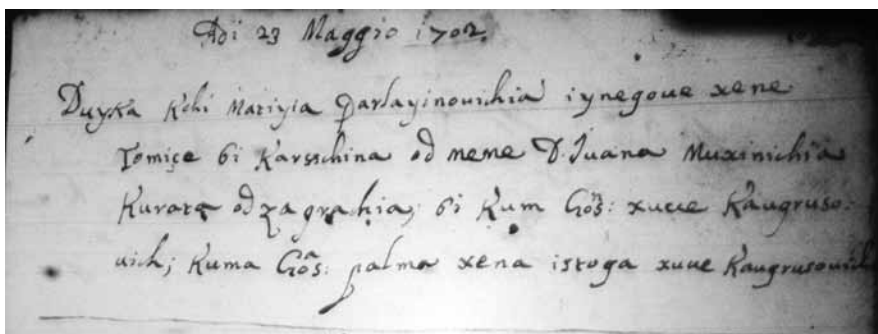 Adi 23 Maggio 1702.
Duyka Kchi Matiyia Parlayinovichia i ynegoue xene
Tomiçe bi Karsschina od mene D. Iuana Muxinichia
Kurata od zagrahia; bi Kum Gosⁿ: xuue Kaugruso:
uich; Kuma Gosᵃ: palma xena istoga xuue Kaugrusouich